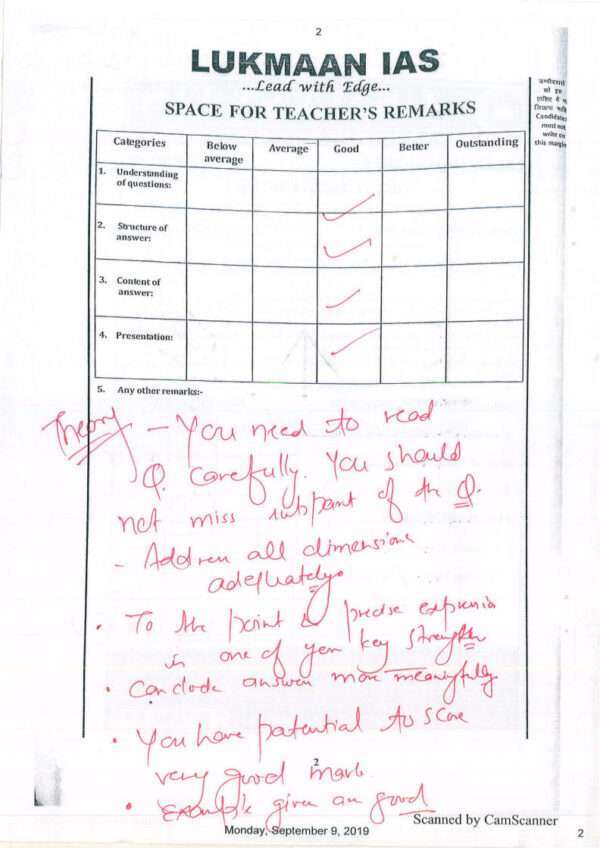 2
LUKMAAN IAS
...Lead with Edge...
SPACE FOR TEACHER'S REMARKS
उम्मीदवारों
को इस
हाशिए में
Candidates
must not
write on
this margin
Categories Below average Average Good Better Outstanding
1. Understanding of questions:
2. Structure of answer:
3. Content of answer:
4. Presentation:
5. Any other remarks:-
Theory - You need to read
Q. carefully. You should
not miss subpart of the Q.
- Address all dimensions
adequately.
• To the point & precise expression
is one of your key strengths
• Conclude answer more meaningfully
• You have potential to score
2
very good mark.
• Example given are good
Scanned by CamScanner
Monday, September 9, 2019
2